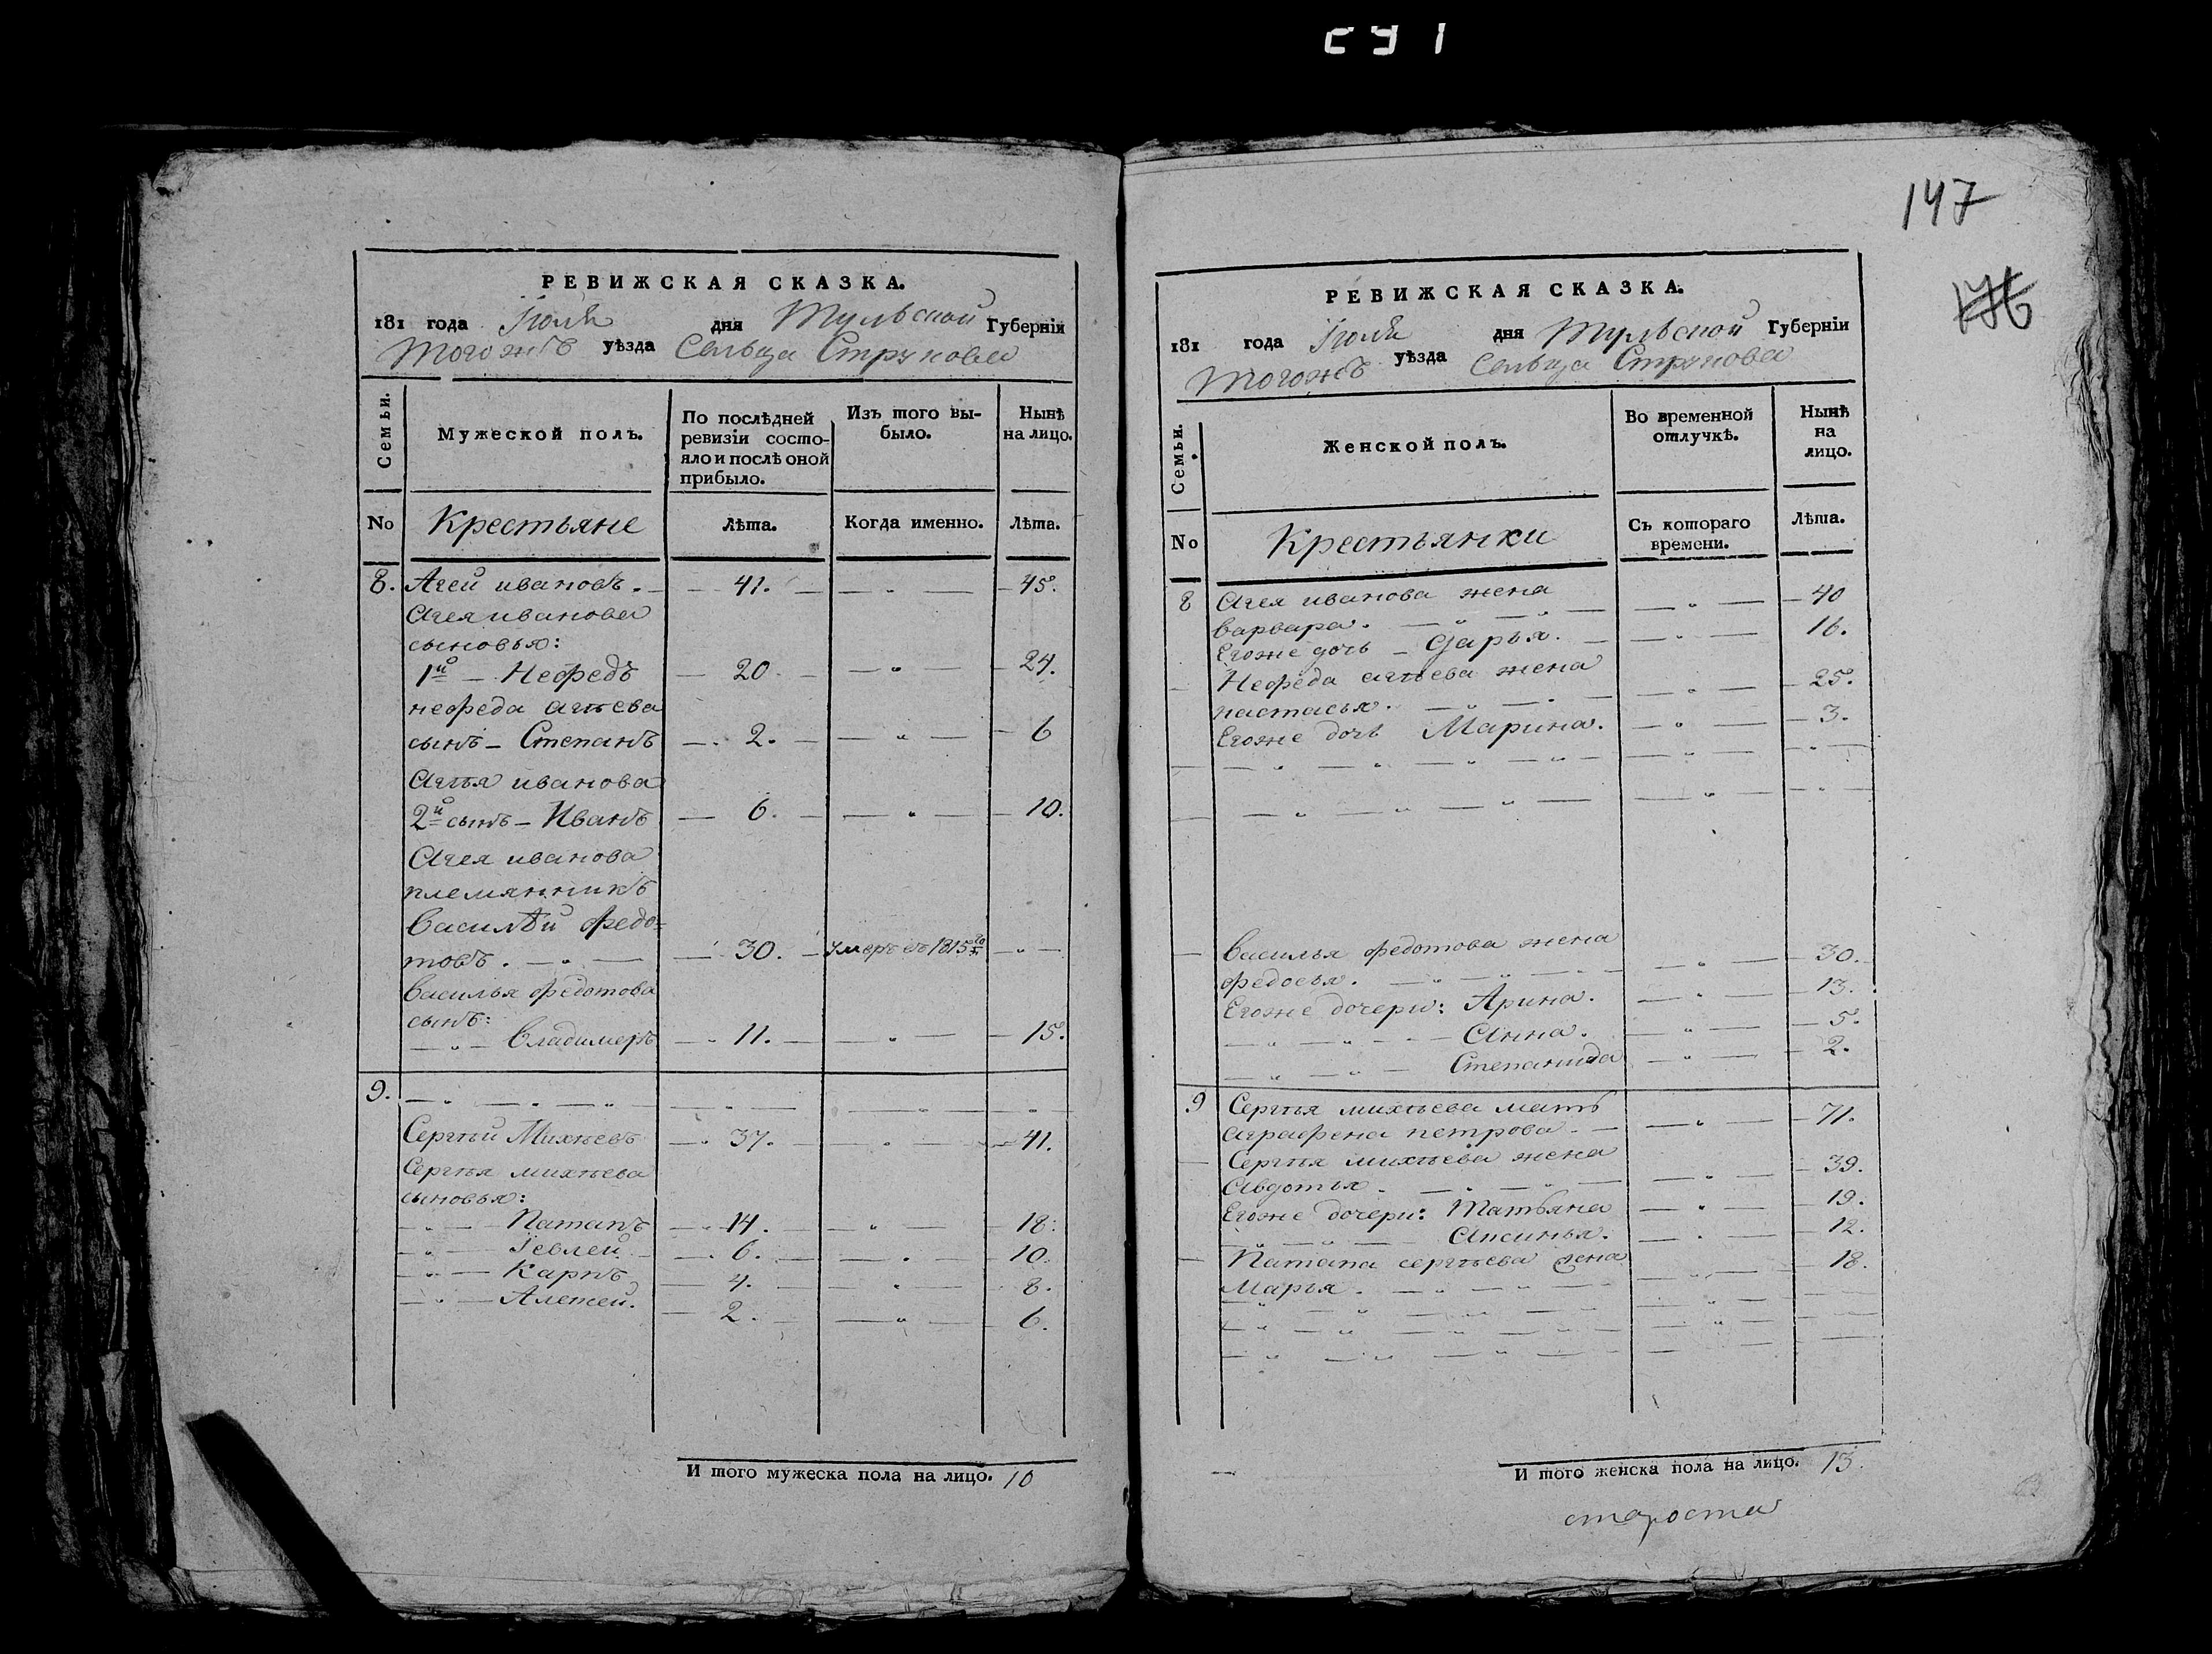 147
РЕВИЖСКАЯ СКАЗКА.
181 года Іюля дня Тульской Губерніи
Тогожъ уѣзда Сельца Струкова
Семьи.
Мужеской полъ.
По послѣдней ревизіи состояло и послѣ оной прибыло.
Изъ того выбыло.
Нынѣ на лицо.
No Крестьяне Лѣта. Когда именно. Лѣта.
8. Агей ивановъ. 41. 45.
Агея иванова
сыновья:
1й Нефедъ 20 24.
нефеда агѣева
сынъ Степанъ 2. 6
Агѣя иванова
2й сынъ Иванъ 6. 10.
Агея иванова
племянникъ
Василѣй федо=
товъ. 30. умеръ въ 1815го
Василья федотова
сынъ:
Владимеръ 11. 15.
9.
Сергѣй Михѣевъ 37. 41.
Сергѣя михѣева
сыновья:
Патапъ 14. 18.
Іевлей 6. 10.
Карпъ 4. 8.
Алетей. 2. 6.
И того мужеска пола на лицо. 10
РЕВИЖСКАЯ СКАЗКА.
181 года Іюля дня Тульской Губерніи
Тогожъ уѣзда Сельца Струкова
Семьи.
Женской полъ.
Во временной отлучкѣ.
Нынѣ на лицо.
No Крестьянки Съ котораго времени. Лѣта.
8 Агея иванова жена
варвара. 40
Егоже дочь Дарья. 16.
Нефеда агѣева жена
настасья. 25.
Егоже дочь Марина. 3.
Василья федотова жена
федосья. 30.
Егоже дочери: Арина. 13.
Анна. 5.
Степанида 2.
9 Сергѣя михѣева мать
аграфена петрова 71.
Сергѣя михѣева жена
Авдотья. 39.
Егоже дочери: Татьяна 19.
Аксинья. 12.
Патапа сергѣева жена
Марья. 18.
И того женска пола на лицо. 13.
староста